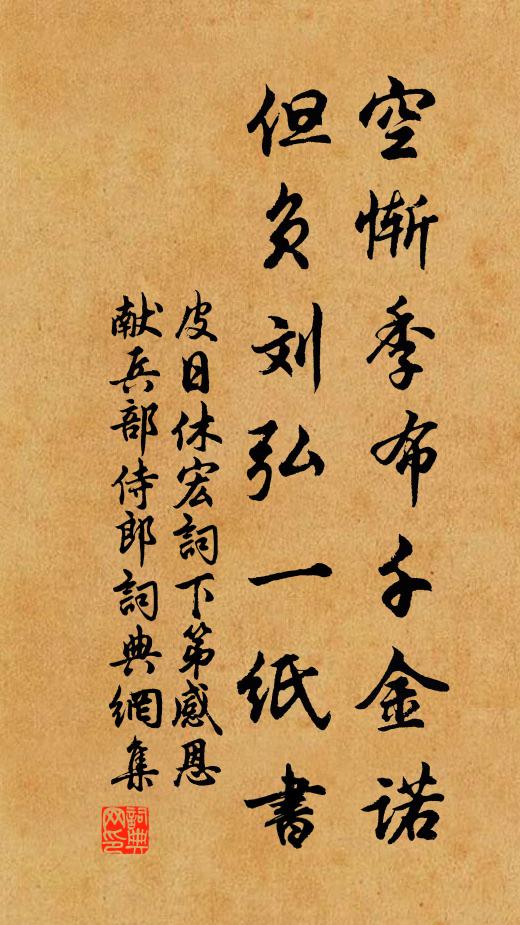 空惭季布千金诺
但负刘弘一纸書
皮日休宏詞下第感恩
献兵部侍郎詞典網集
詞典
网印